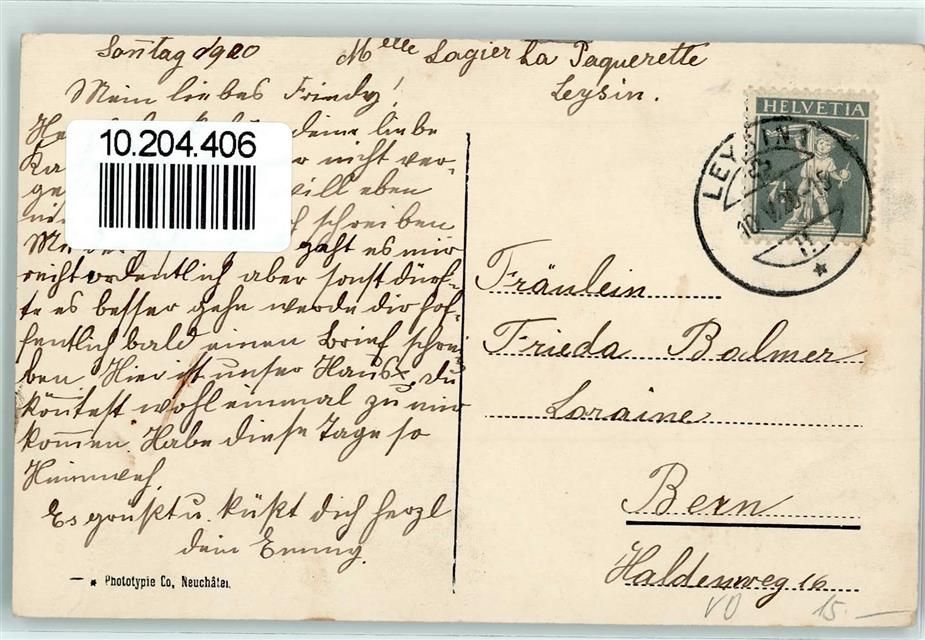 Sontag 1920
Melle Lagier La Paquerette
Leysin.
Mein liebes Friedy!
10.204.406
deine liebe
nicht ver-
will eben
schreiben
gaht es mir
recht ordentlich aber sonst dürf-
te es besser gehn werde dir hof-
fentlich bald einen Brief schrei
ben Hier ist unser Haus, du
könntest wohl einmal zu mir
kommen. Habe diese Tage so
Heimweh.
Es grüßt u. küßt dich herzl
dein Emmy.
HELVETIA
7½
LEYSIN
10.V.
Fräulein
Frieda Balmer
Loraine
Bern
Haldenweg 16
Phototypie Co, Neuchâtel.
VO 15.-